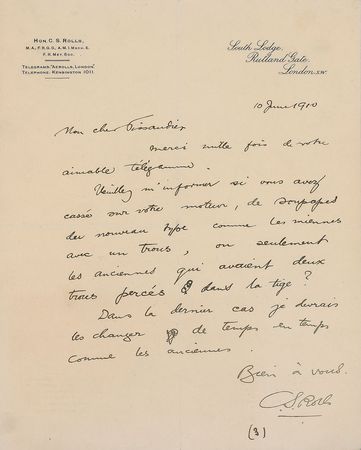 HON. C. S. ROLLS,
M.A., F.R.G.S., A.M.I. MECH. E.
F. R. MET. SOC.
TELEGRAMS: "AEROLLS, LONDON"
TELEPHONE: KENSINGTON 1011.
South Lodge,
Rutland Gate,
London, S.W.
10 June 1910
Mon cher Tissandier
Merci mille fois de votre
aimable télégramme.
Veuillez m'informer si vous avez
cassé sur votre moteur, de soupapes
du nouveau type comme les miennes
avec un trous, ou seulement
les anciennes qui avaient deux
trous percés dans la tige?
Dans la dernier cas je devrais
les changer de temps en temps
comme les anciennes.
Bien à vous.
C S Rolls
(3)